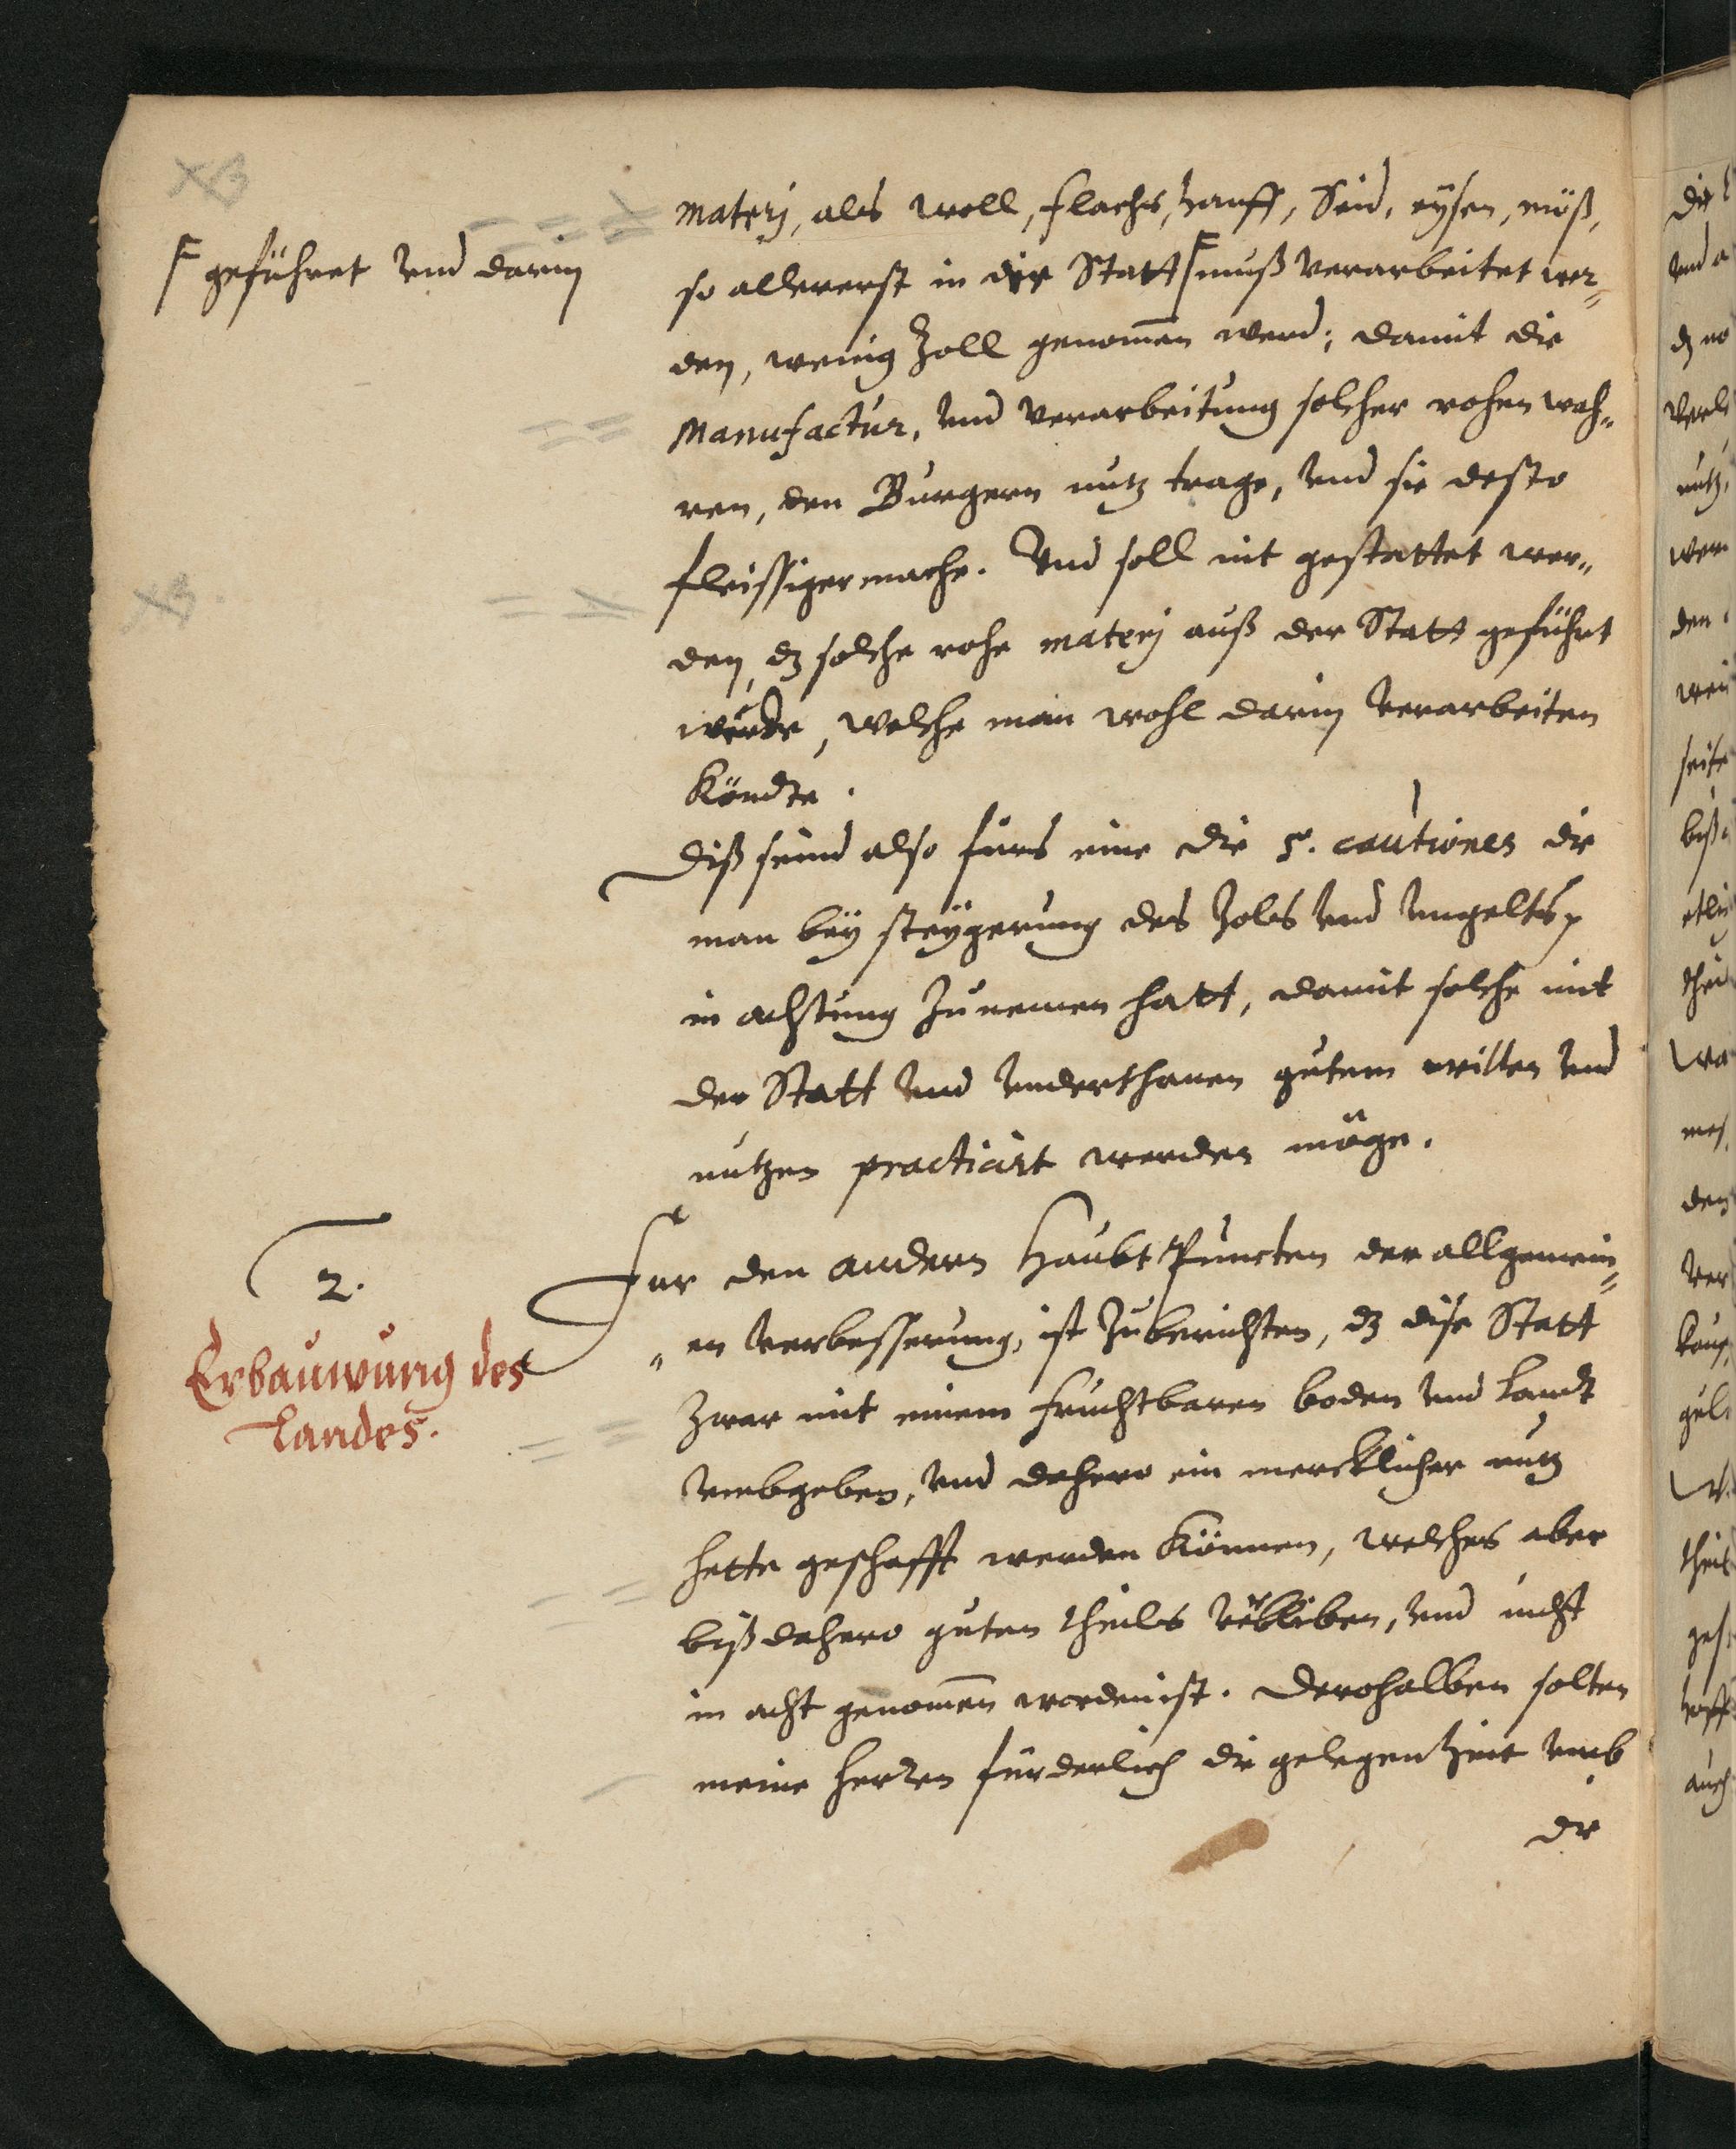 materj, als woll, flachs, hanff, Seid, eysen, möß,
so allererst in die Statt ꟻ muß verarbeitet wer„
ꟻ geführet vnd darin
den, wenig Zoll genom̄en werd; damit die
Manufactur, vnd verarbeitung solcher rohen wah„
ren, den Burgern nutz trage, vnd sie desto
fleissiger mache. Vnd soll nit gestattet wer„
den, dz solche rohe materj auß der Statt geführt
würde, welche man wohl darin verarbeiten
köndte.
Diß seind also fürs eine die 5. cautiones die
man bey steygerung des Zols vnd vmgelts
in achtung zunemen hatt, damit solche mit
der Statt vnd vnderthanen gutem willen vnd
nutzen practicirt werden möge.
2.
Erbauwung des
Landes.
Für den andern Haubt Puncten der allgemein„
„en verbesserung, ist zuberichten, dz dise Statt
zwar mit einem fruchtbaren boden vnd Landt
vmbgeben, vnd dahero ein mercklicher nutz
hette geschafft werden können, welches aber
bißdahero guten theils v̈bliben, vnd nicht
in acht genom̄en worden ist. Derohalben solten
meine Herren fürderlich die gelegenheit vmb
die